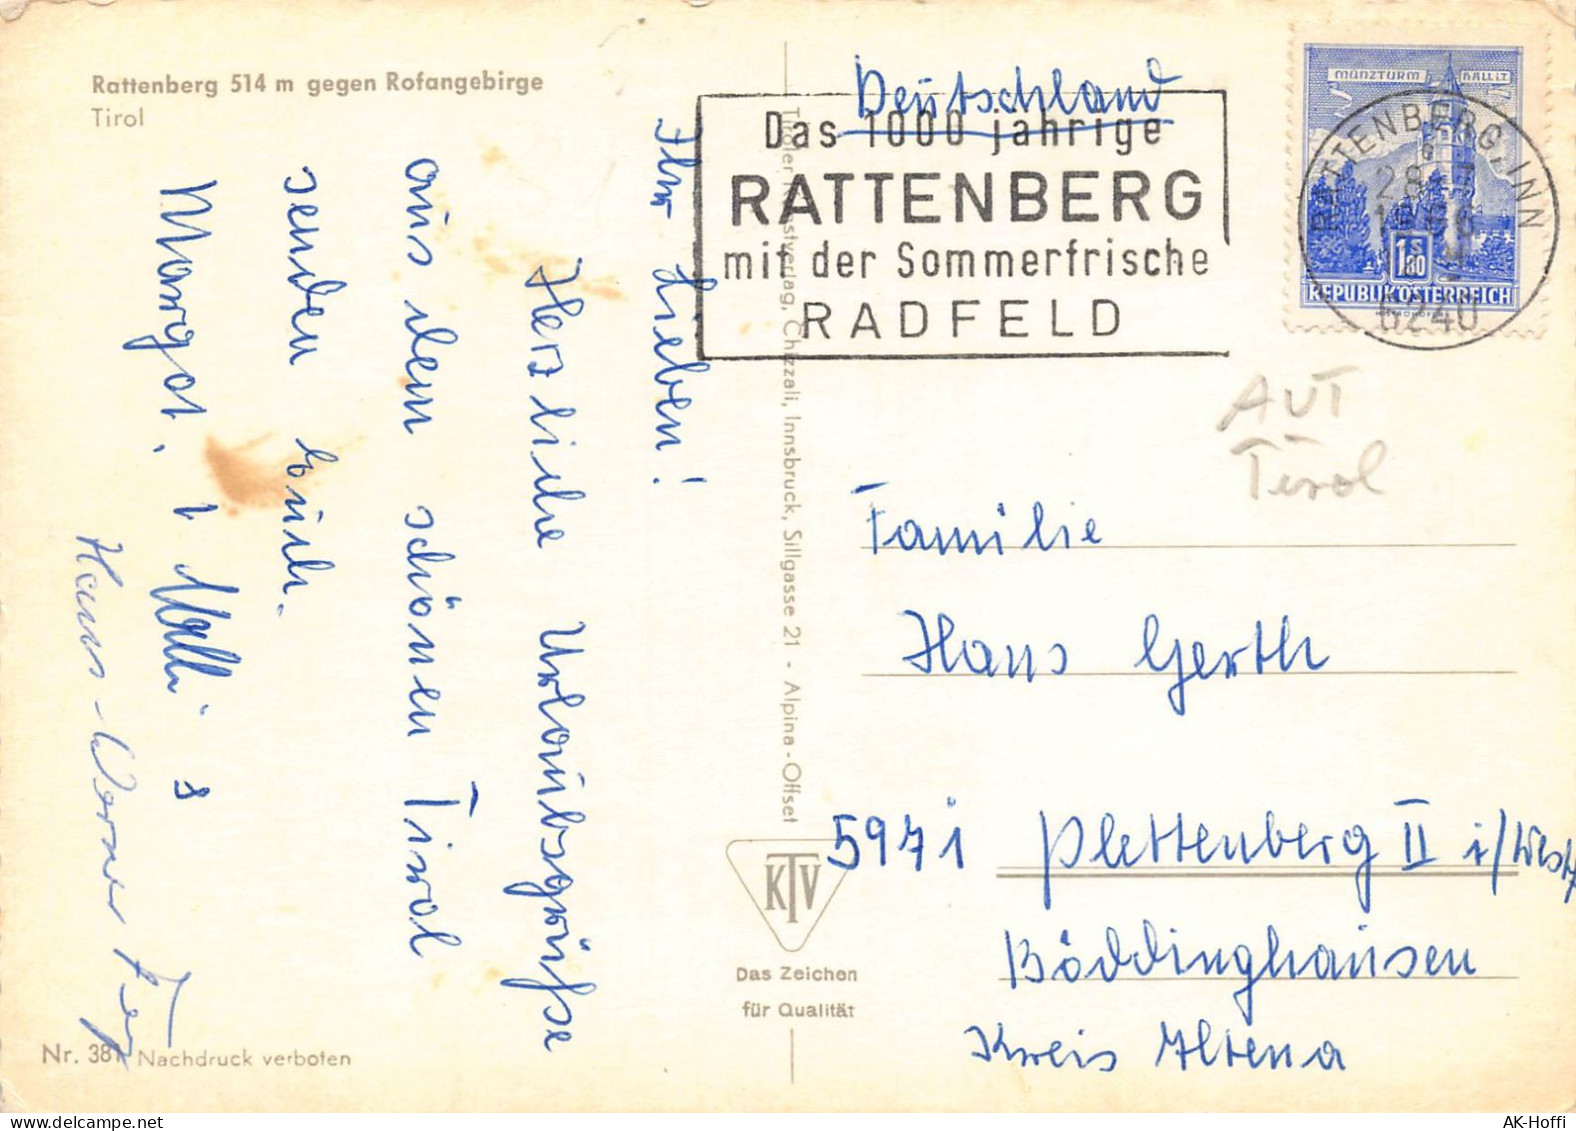 Rattenberg 514 m gegen Rofangebirge
Tirol
Ihr Lieben!
Herzliche Urlaubsgrüße
aus dem schönen Tirol
senden Euch.
Margot,
Hans-Werner
Nr. 381 Nachdruck verboten
Tiroler Kunstverlag, Chizzali, Innsbruck, Sillgasse 21 - Alpina-Offset
KTV
Das Zeichen
für Qualität
Deutschland
Das 1000 jährige
RATTENBERG
mit der Sommerfrische
RADFELD
MÜNZTURM HALL i.T.
1.80 S
REPUBLIK ÖSTERREICH
RATTENBERG, INN
6240
AUT
Tirol
Familie
Hans Gerth
5971 Plettenberg II i/Westf
Böddinghausen
Kreis Altena
AK-Hoffi